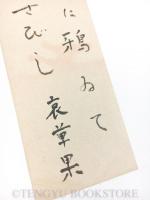 に鴉ゐて
さびし
哀草果
© TENGYU BOOKSTORE